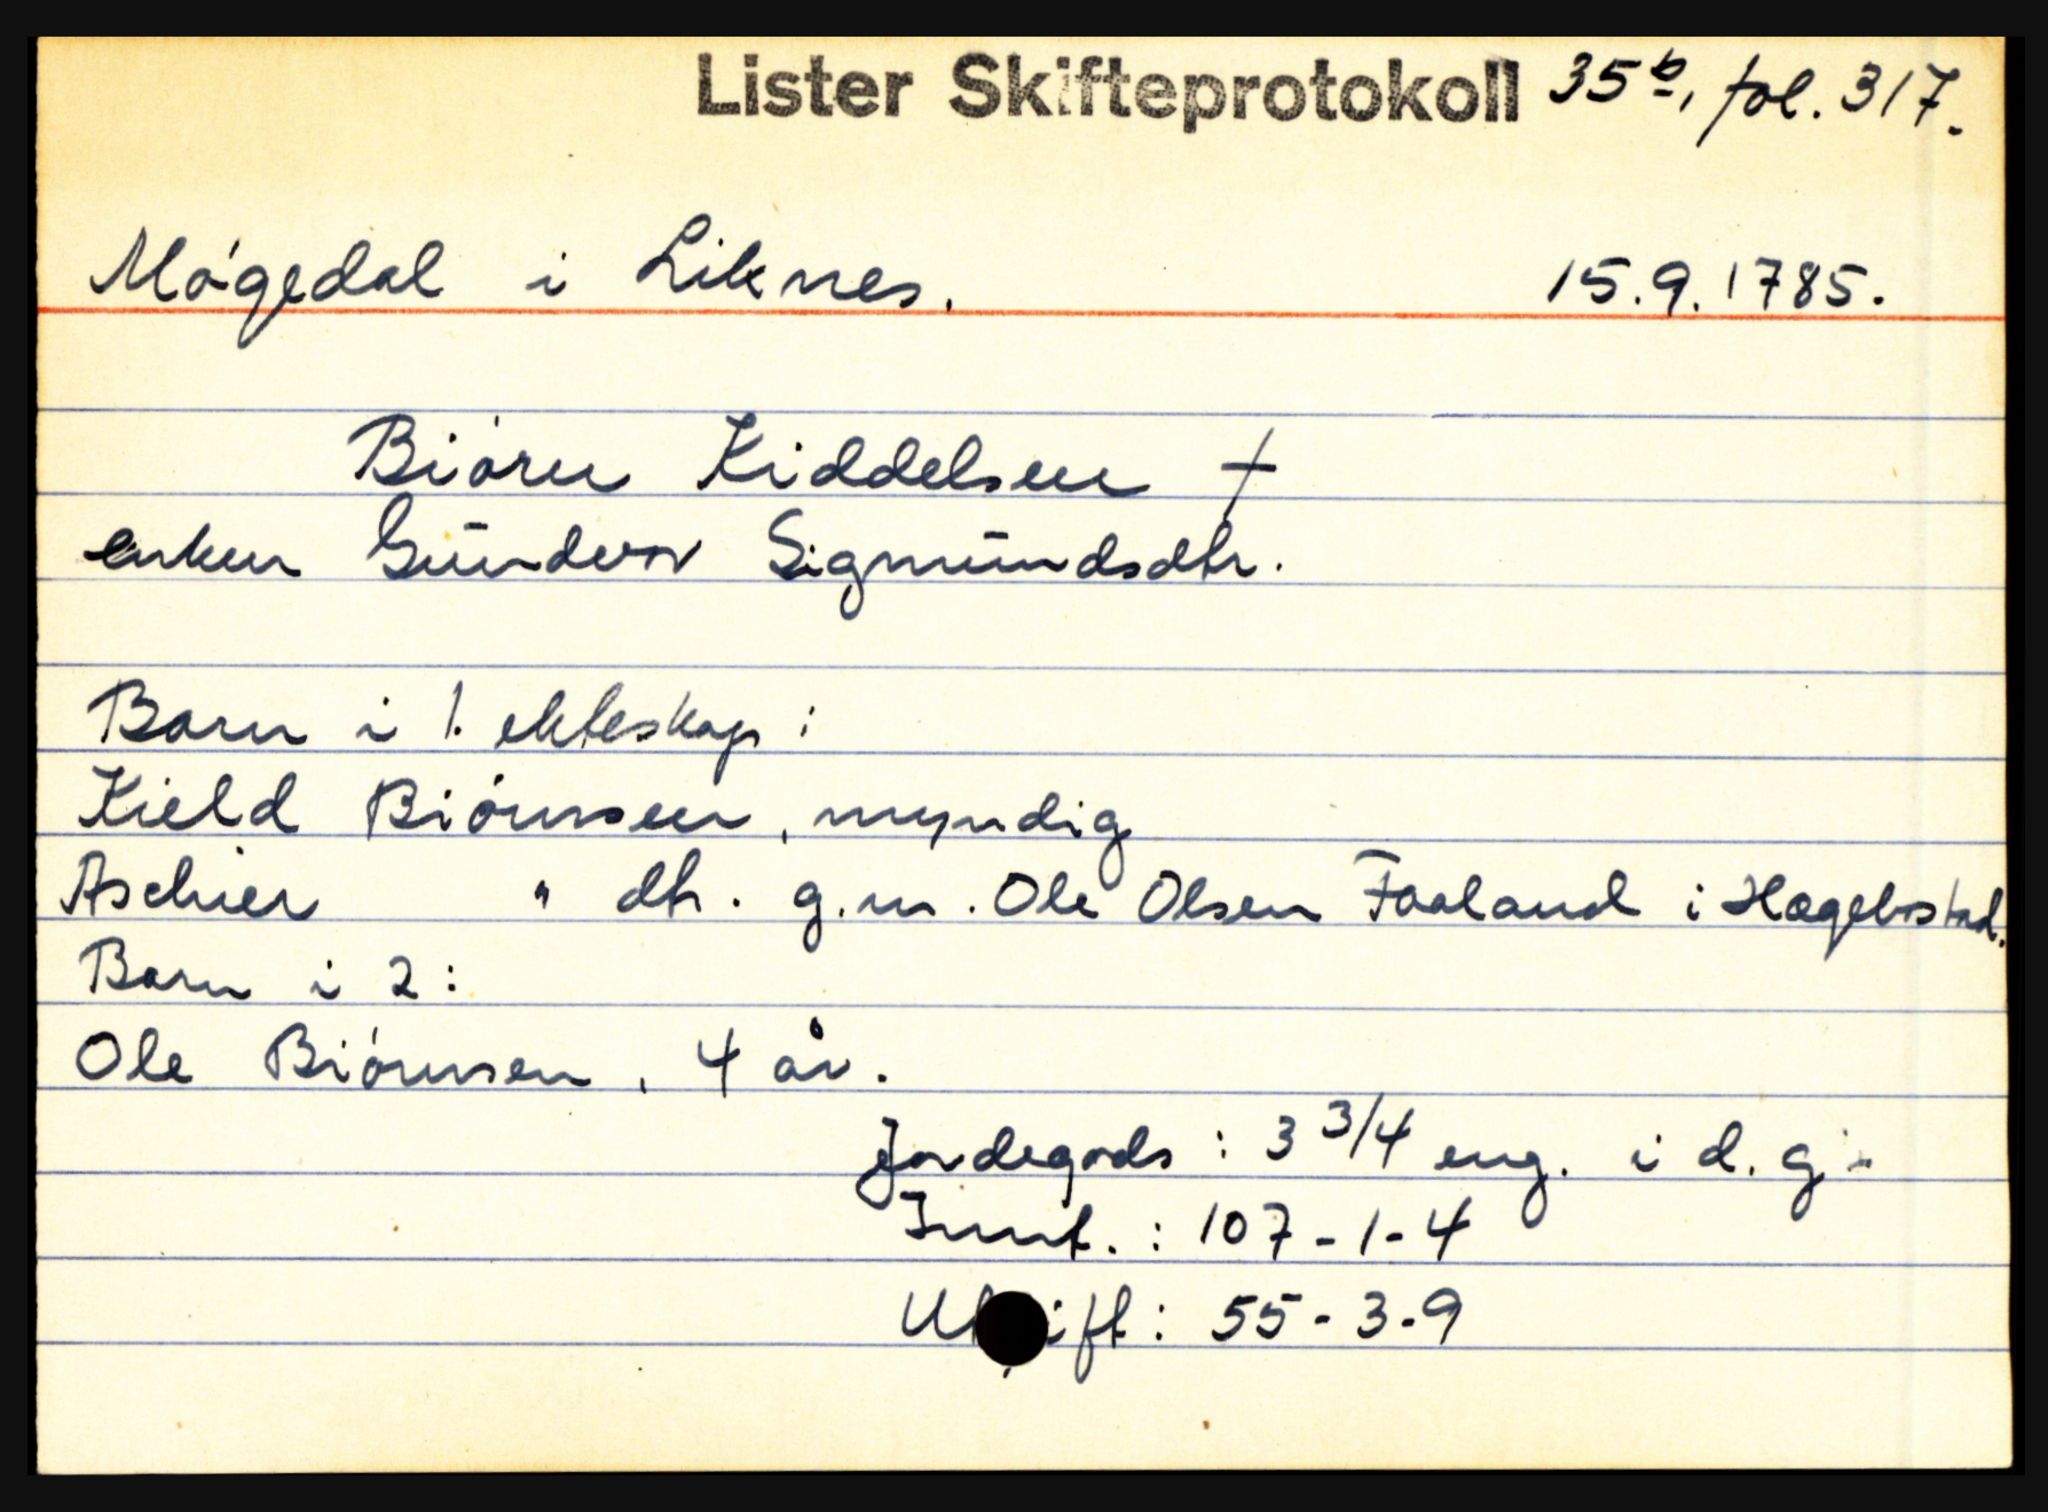 Lister Skifteprotokoll 35b, fol. 317.
Mógedal i Liknes. 15.9.1785.
Biórn Kiddelsen †
enken Gūndvor Sigmūndsdtr.
Barn i 1. ekteskap:
Kield Biórnsen, myndig
Aschier " dtr. g.m. Ole Olsen Faaland i Hægebostad.
Barn i 2:
Ole Biórnsen, 4 år.
Jordegods: 3 3/4 eng. i d. g.
Innt.: 107-1-4
55-3-9